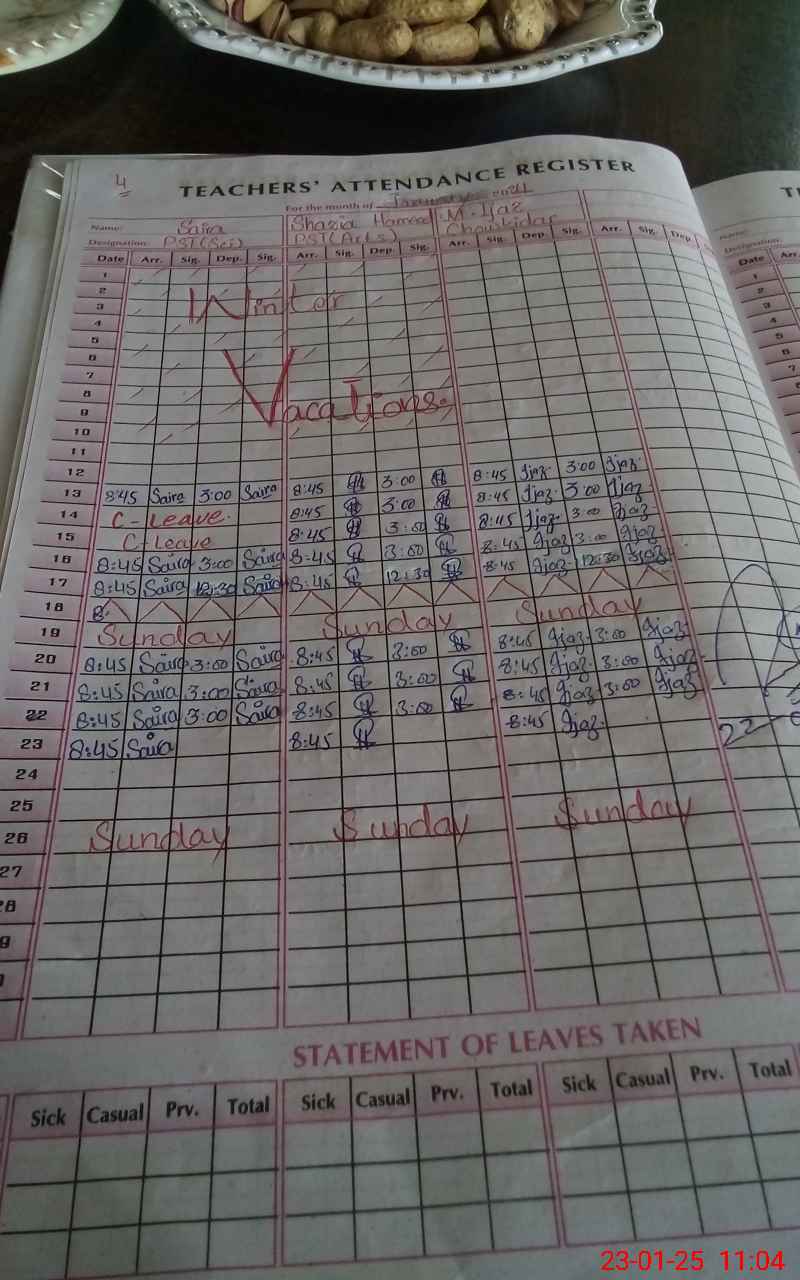 4
TEACHERS' ATTENDANCE REGISTER
For the month of January
Name: Saira Shazia Hameed M. Ijaz
Designation: PST(Sci) PST(Arts) Chowkidar
Date Arr. Sig. Dep. Sig. Arr. Sig. Dep. Sig. Arr. Sig. Dep. Sig. Arr. Sig. Dep.
1
2
3 Winter
4
5
6
7
8 Vacations.
9
10
11
12
13 8:45 Saira 3:00 Saira 8:45 3:00 8:45 Ijaz 3:00 Ijaz
14 C-Leave. 8:45 3:00 8:45 Ijaz 3:00 Ijaz
15 C-Leave 8:45 3:00 8:45 Ijaz 3:00 Ijaz
16 8:45 Saira 3:00 Saira 8:45 3:00 8:45 Ijaz 3:00 Ijaz
17 8:45 Saira 12:30 Saira 8:45 12:30 8:45 Ijaz 12:30 Ijaz
18 8
19 Sunday Sunday Sunday
20 8:45 Saira 3:00 Saira 8:45 3:00 8:45 Ijaz 3:00 Ijaz
21 8:45 Saira 3:00 Saira 8:45 3:00 8:45 Ijaz 3:00 Ijaz
22 8:45 Saira 3:00 Saira 8:45 3:00 8:45 Ijaz 3:00 Ijaz
23 8:45 Saira 8:45 8:45 Ijaz
24
25
26 Sunday Sunday Sunday
27
28
STATEMENT OF LEAVES TAKEN
Sick Casual Prv. Total Sick Casual Prv. Total Sick Casual Prv. Total
Name:
Designation:
Date Arr.
1
2
3
4
5
6
7
8
23-01-25 11:04